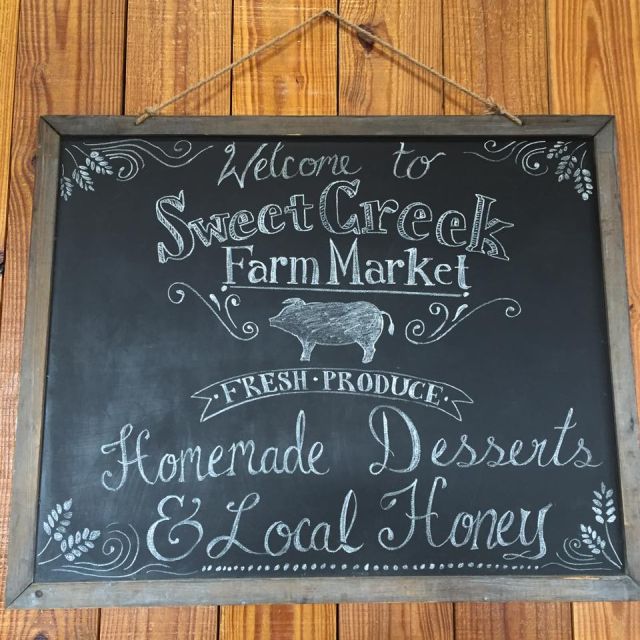 Welcome to
Sweet Creek
Farm Market
FRESH · PRODUCE
Homemade Desserts
& Local Honey